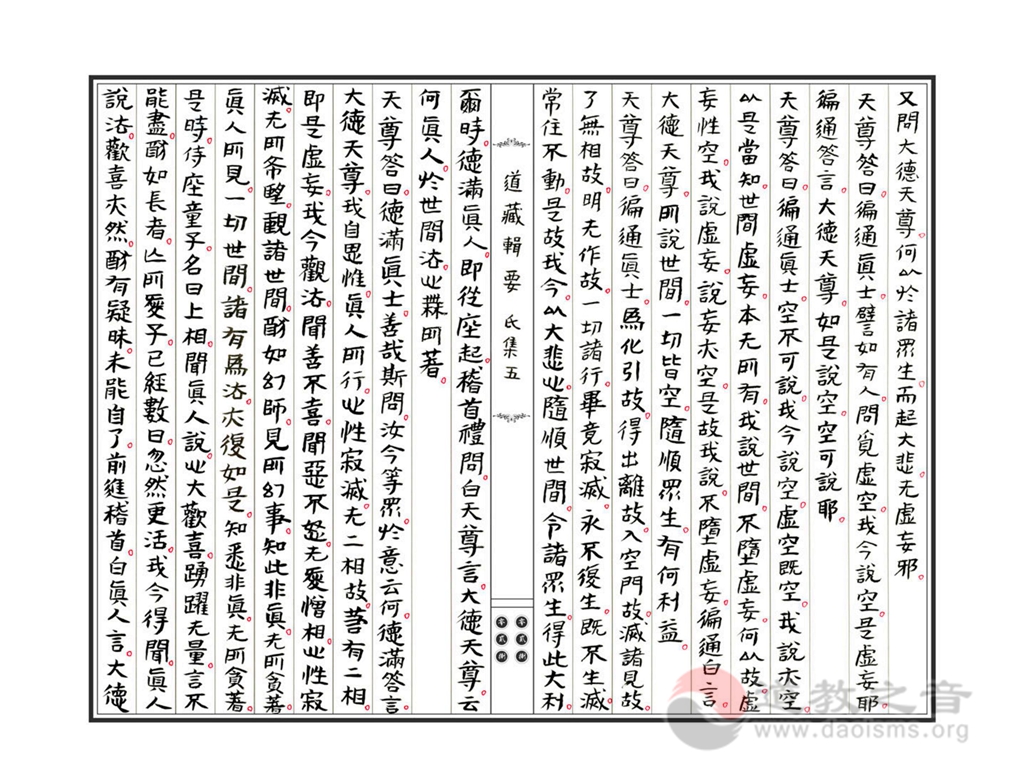 又問大德天尊何以於諸眾生而起大悲无虛妄邪
天尊答曰徧通眞士譬如有人問覓虛空我今說空是虛妄耶
徧通答言大德天尊如是說空空可說耶
天尊答曰徧通眞士空不可說我今說空虛空既空我說亦空
以是當知世間虛妄本无所有我說世間不墮虛妄何以故虛
妄性空我說虛妄說妄亦空是故我說不墮虛妄徧通白言
大德天尊所說世間一切皆空隨順眾生有何利益
天尊答曰徧通眞士爲化引故得出離故入空門故滅諸見故
了無相故明无作故一切諸行畢竟寂滅永不復生既不生滅
常住不動是故我今以大悲心隨順世間令諸眾生得此大利
道藏輯要 氐集五
零貳捌
零貳捌
爾時德滿眞人即從座起稽首禮問白天尊言大德天尊云
何眞人於世間法心無所著
天尊答曰德滿眞士善哉斯問汝今等眾於意云何德滿答言
大德天尊我自思惟眞人所行心性寂滅无二相故若有二相
即是虛妄我今觀法聞善不喜聞惡不怒无愛憎相心性寂
滅无所希望觀諸世間酧如幻師見所幻事知此非眞无所貪著
眞人所見一切世間諸有爲法亦復如是知悉非眞无所貪著
是時侍座童子名曰上相聞眞人說心大歡喜踴躍无量言不
能盡酧如長者亾所愛子已經數日忽然更活我今得聞眞人
說法歡喜亦然酧有疑昧未能自了前進稽首白眞人言大德
道教之音
www.daoisms.org